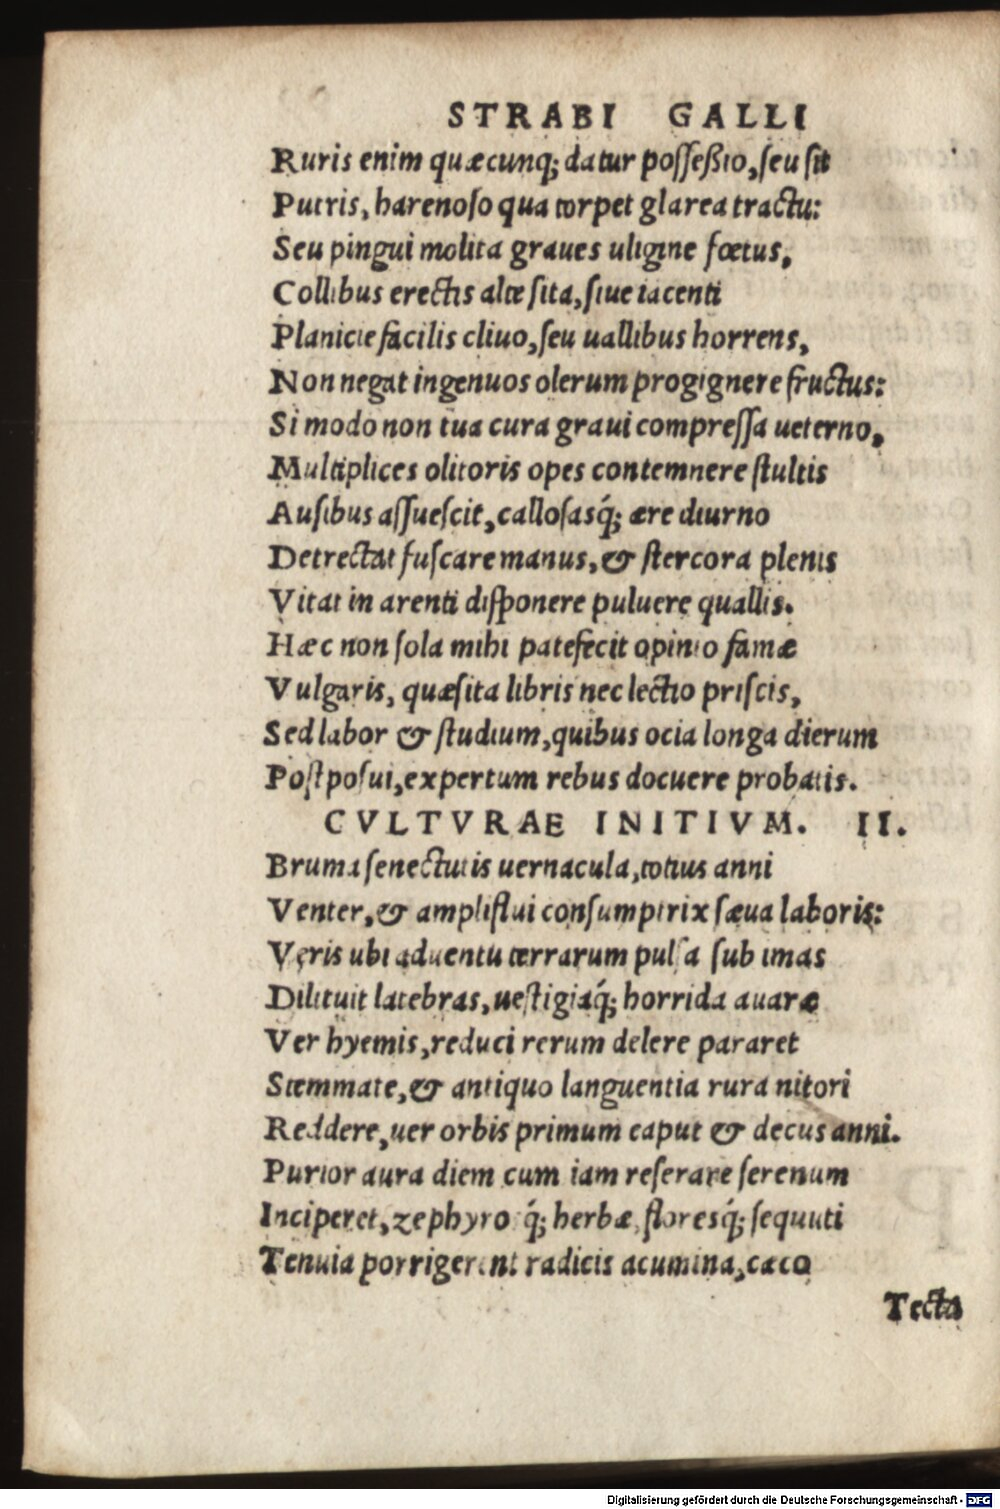 STRABI GALLI
Ruris enim quæcunq; datur posseßio, seu sit
Putris, harenoso qua torpet glarea tractu:
Seu pingui molita graues uligine fœtus,
Collibus erectis alte sita, siue iacenti
Planicie facilis cliuo, seu uallibus horrens,
Non negat ingenuos olerum progignere fructus:
Si modo non tua cura graui compressa ueterno,
Multiplices olitoris opes contemnere stultis
Ausibus assuescit, callosasq́; ære diurno
Detrectat fuscare manus, & stercora plenis
Vitat in arenti disponere puluere quallis.
Hæc non sola mihi patefecit opinio famæ
Vulgaris, quæsita libris nec lectio priscis,
Sed labor & studium, quibus ocia longa dierum
Postposui, expertum rebus docuere probatis.
CVLTVRAE INITIVM. II.
Bruma senectutis uernacula, totius anni
Venter, & ampliflui consumptrix sæua laboris:
Veris ubi aduentu terrarum pulsa sub imas
Dilituit latebras, uestigiaq́; horrida auaræ
Ver hyemis, reduci rerum delere pararet
Stemmate, & antiquo languentia rura nitori
Reddere, uer orbis primum caput & decus anni.
Purior aura diem cum iam reserare serenum
Inciperet, zephyroq́; herbæ, floresq́; sequuti
Tenuia porrigerent radicis acumina, cæco
Tecta
Digitalisierung gefördert durch die Deutsche Forschungsgemeinschaft - DFG